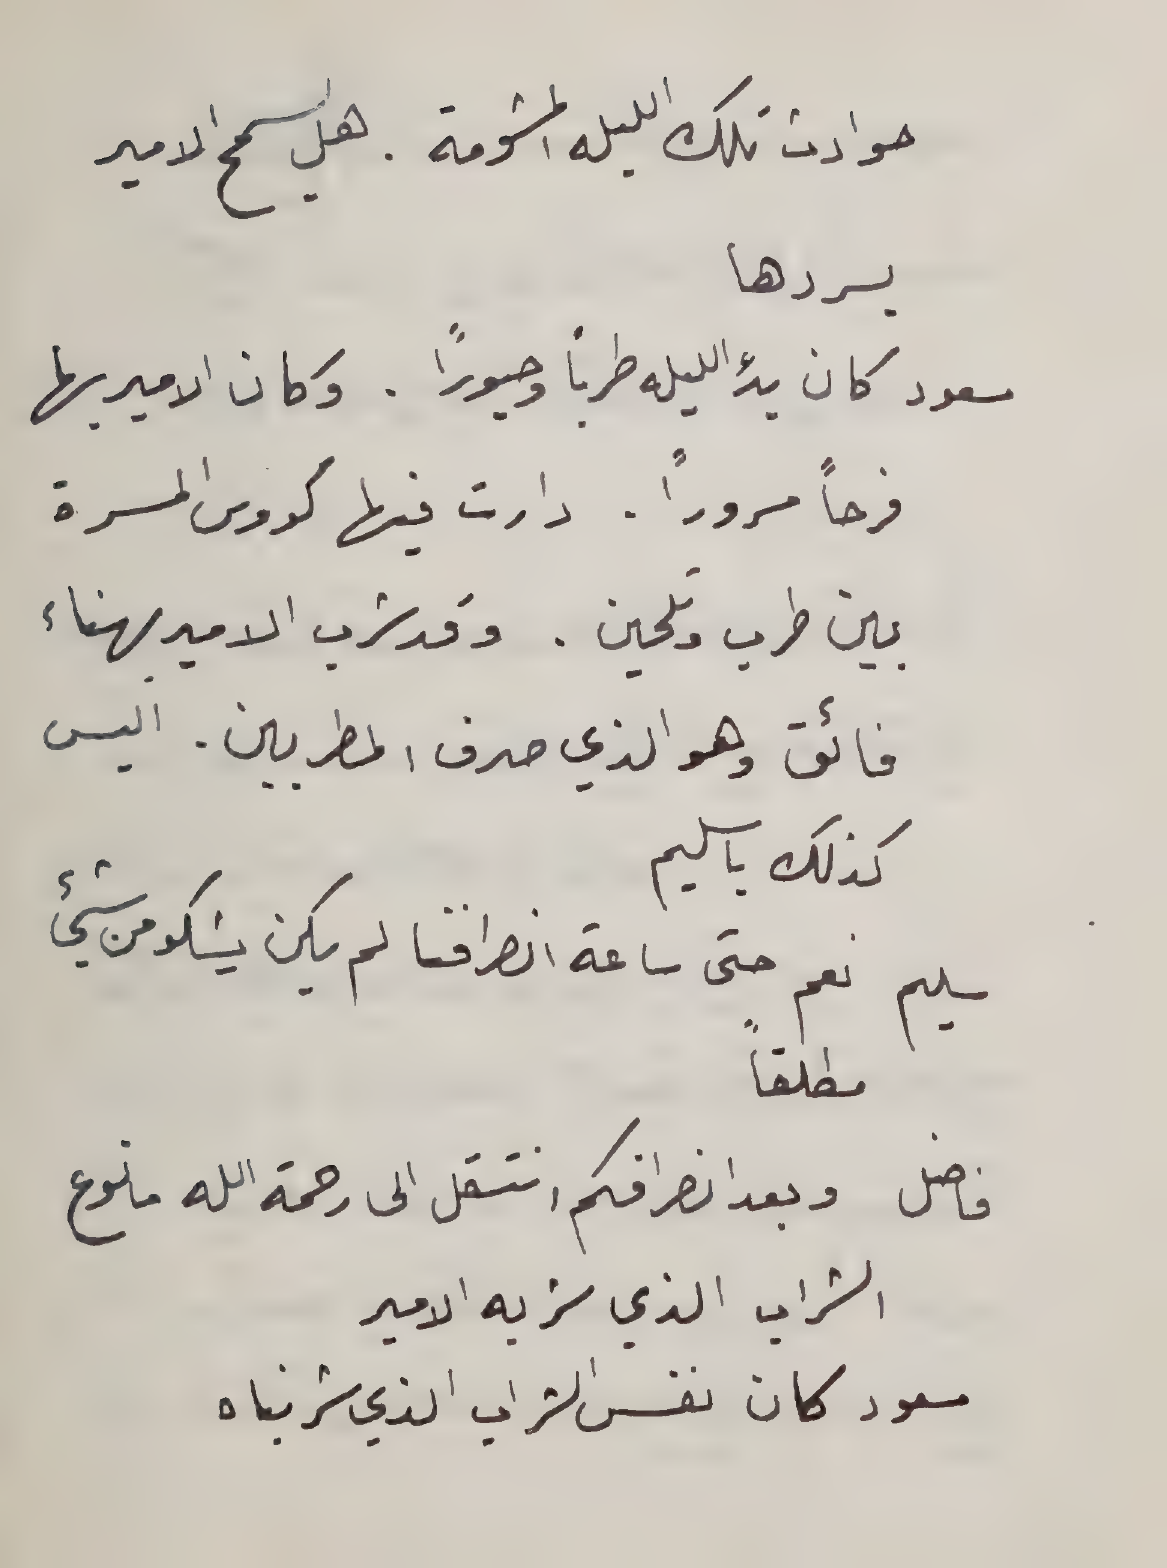 حوادث تلك الليله المشومة . هل يسمح الامير
يسردها
مسعود كان بدؤ الليله طرباً وحبوراً . وكان الامير بها
فرحاً مسروراً . دارت فيها كووس المسرة
بين طرب وتلحين . وقد شرب الامير بهناء
فائق وهو الذي صرف المطربين . اليس
كذلك يا سليم
سليم نعم حتى ساعة انصرافنا لم يكن يشكو من شيئ
مطلقاً
فاضل وبعد انصرافكم انتقل الى رحمة الله ما نوع
الشراب الذي شربه الامير
مسعود كان نفس الشراب الذي شربناه